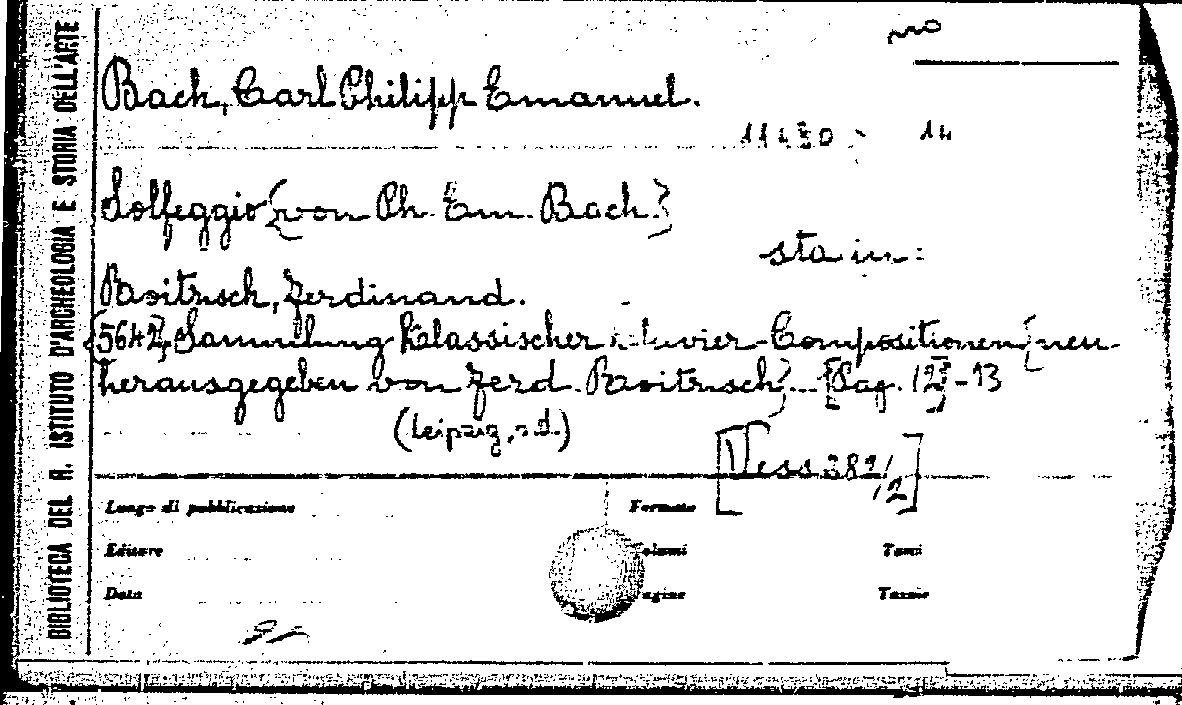 BIBLIOTECA DEL R. ISTITUTO D'ARCHEOLOGIA E STORIA DELL'ARTE
Bach, Carl Philipp Emanuel.
11430 14
Solfeggio {von Ph. Em. Bach.}
sta in:
Roitzsch, Ferdinand.
{5642}, Sammlung Klassischer Clavier-Compositionen {neu
herausgegeben von Ferd. Roitzsch}... [Pag. 12]-13
(Leipzig, s.d.)
[Vess. 382/2]
Luogo di pubblicazione
Formato
Editore
Volumi
Tomi
Data
Pagine
Tavole